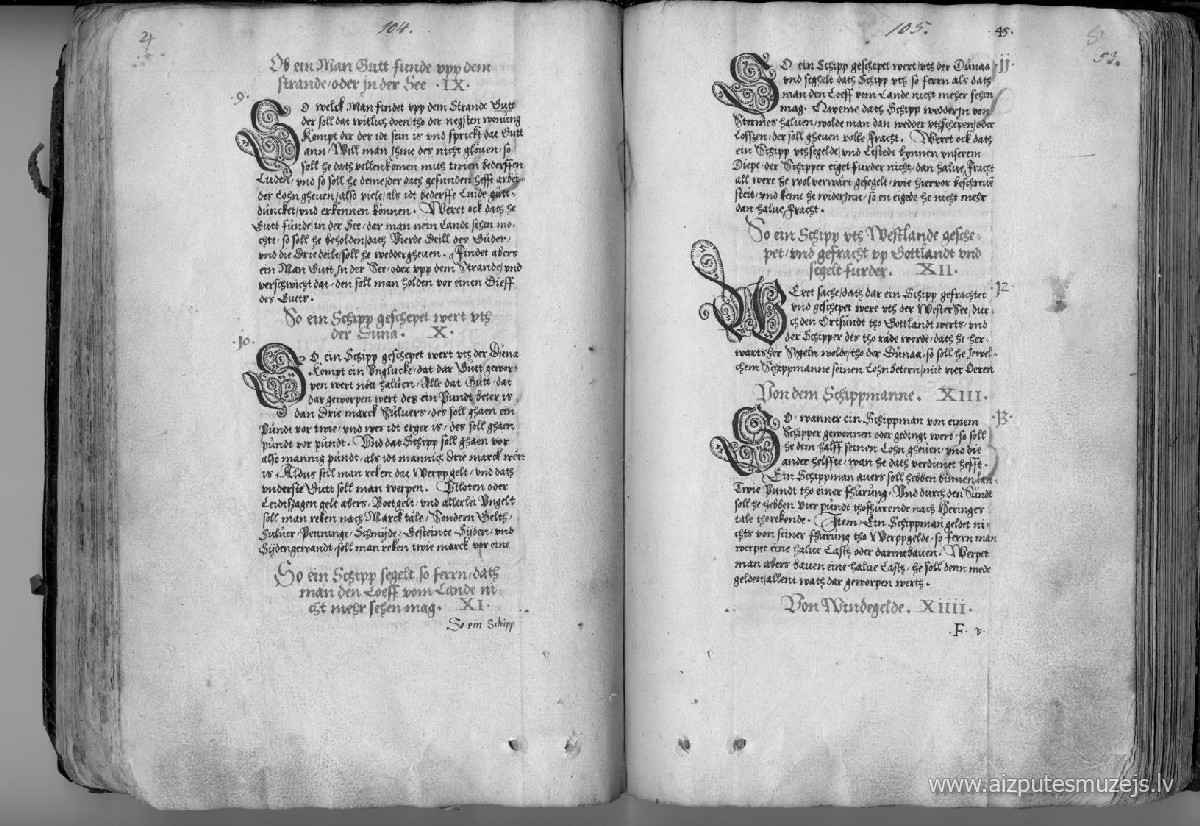 104.
Ob ein Man Gutt funde upp dem
strande/oder jn der See ·IX·
9.
So welck Man findet upp dem Strande Gutt
der soll dat witlich doen tho der negsten wonüng
Kompt der der idt sein is und sprickt dat Gutt
ann/ Will man ihme des nicht glöven/ so
soll he dath vullenkomen mith twen bedersten
Lüden/ und so soll he deme/der dath gefunden hefft
der Lohn gheven/also viele/als idt bederffe Luide gutt
düncket/und erkennen können. Weret ock dath he
Gutt fünde in der See/ dar man nein Landt sehen
so soll he beholden/dath Vierde deill des Güdes/
und die drie deile/soll he weddergheven. Findet abers
ein Man Gutt/in der See/oder upp dem Strande/und
verschwicht dat/den soll man holden vor einen Dieff
des Guets.
So ein Schipp geschepet wert uth
der Düna. X.
10.
So ein Schipp geschepet wert uth der Düna
Kompt ein Unglücke/dat dar Gutt gewor-
pen wert nott halven/Alle dat Gutt/dat
dar geworpen wert des ein Pundt beter is
dan drie marck Sülvers/des soll ghaen ein
Pündt vor twe/und wes idt erger is/des soll ghaen
pündt vor pündt. Und dat Schipp soll ghaen vor
also mannig pündt/als idt mannich drie marck wert
is. Aldus soll man reken dat Werppgelt/und dath
underste Gutt soll man werpen. Piloten oder
Leidtsagen gelt abers, Boetgelt/und allerlei Ungelt
soll man reken nach Marck tale/Sondern Geldt/
Sülver/Penninge/Schmijde/Gesteinte/Sijder/und
Sijdengewandt/soll man reken twie marck vor eine
So ein Schipp segelt so ferrn/dath
man den Loeff vom Lande ni-
cht mehr sehen mag. XI.
So ein Schipp
105.
45.
53.
11
So ein Schipp geschepet wert/uth der Dünaa
und seghelt dath Schipp uth so ferrn als dath
man den Loeff vom Lande nicht meher sehen
mag. Queme dath Schipp wedder/in von
Stormes halven/wolde man dan wedder uthschepen/oder
Lossen/der soll gheven volle fracht. Weret ock dath
ein Schipp uthsegelde/und Lestede bynnen unserem
Diepe/der Schipper eiget furder nicht/dan halve fracht
all were he wol verwart gesegelt/wie hiervor beschreven
steit/und keme he wider/in/so en eigede he nicht mehr
dan halve fracht.
So ein Schipp uth Westlande gesche-
pet/und gefracht up Gottlandt und
segelt furder. XII.
12
Weret sache/dath dar ein Schipp gefrachtet
und geschepet were uth der Wester See/dur-
ch den Ortsündt tho Gottlandt werts/und
der Schipper der tho rade werde/dath he her-
wartsher Segeln wolde/tho der Dünaa/so soll he jewel-
chem Schippmanne seinen Lohn beteren/mit vier Oeren
Von dem Schippmanne. XIII.
13
So wanner ein Schippman von einem
Schipper gewunnen oder gedingt wert/so soll
he dem halff seinen Lohn gheven/und die
ander helffte/wan he dath verdienet hefft.
Ein Schippman avers soll hebben binnen lan-
Twie Pundt tho einer fhürüng/Und durch den Sündt
soll he hebben vier pündt tho fhürende nach Heringes
tale tho rekende. Item/Ein Schippman geldet ni-
chts von seiner fhürüng tho Werppgelde/so ferrn man
werpet eine halve Lasth oder darentbauen. Werpet
man abers bauen eine halve Lasth/he soll denn mede
gelden/allent wath dar geworpen werth.
Von Windegelde. XIIII.
F. v.
www.aizputesmuzejs.lv